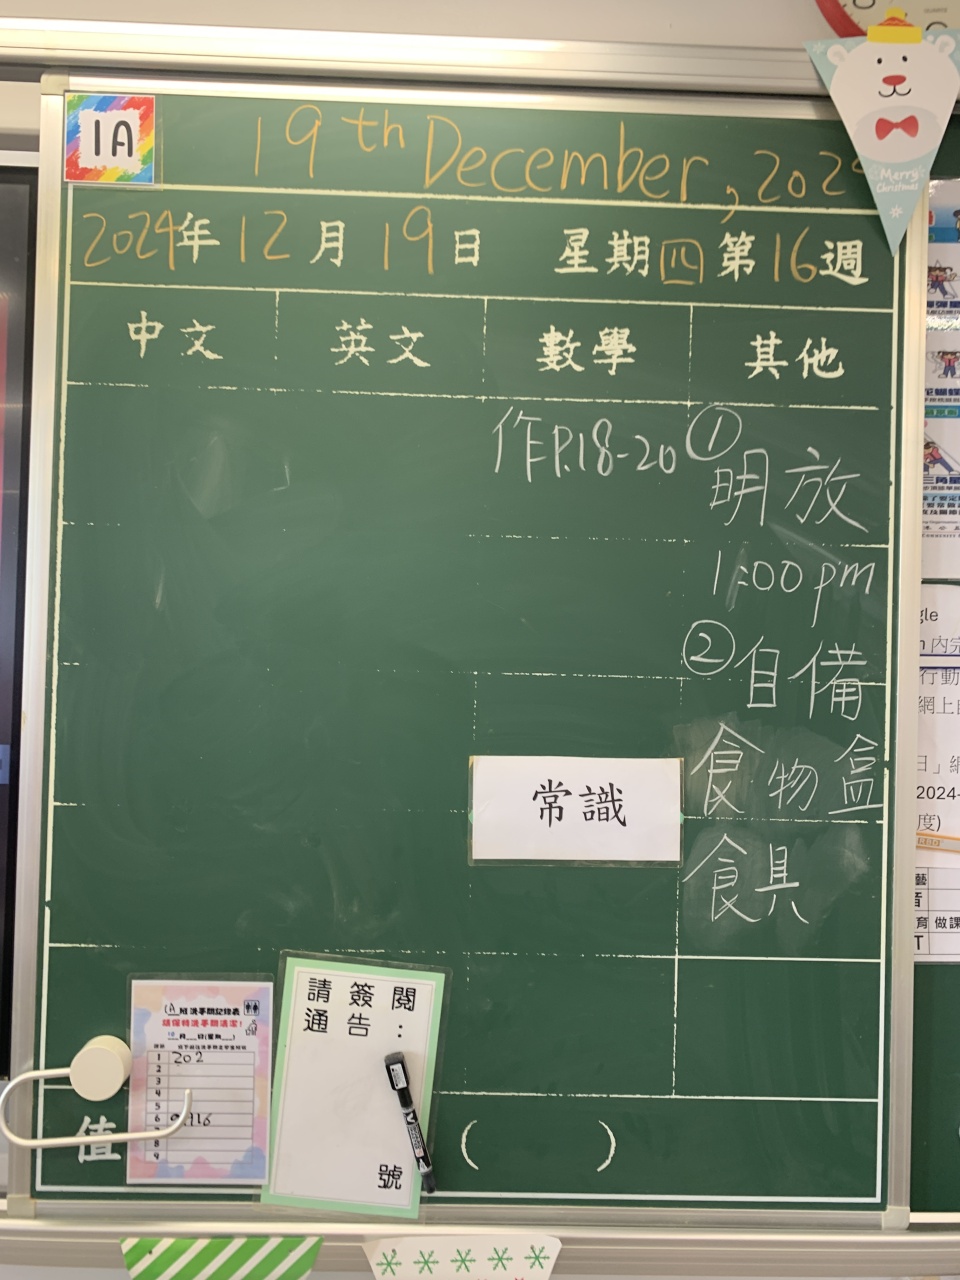 1A
19th December, 202
Merry
Christmas
2024年12月19日 星期四第16週
中文 英文 數學 其他
作P.18-20
①明放
1:00pm
②自備
食物盒
食具
常識
請簽閱
通告:
號
1A班洗手間記錄表
請保持洗手間清潔!
1 202
2
3
4
5
6
8
9
值
( )
gle
行動
網上
日」網
2024-
度)
三角星